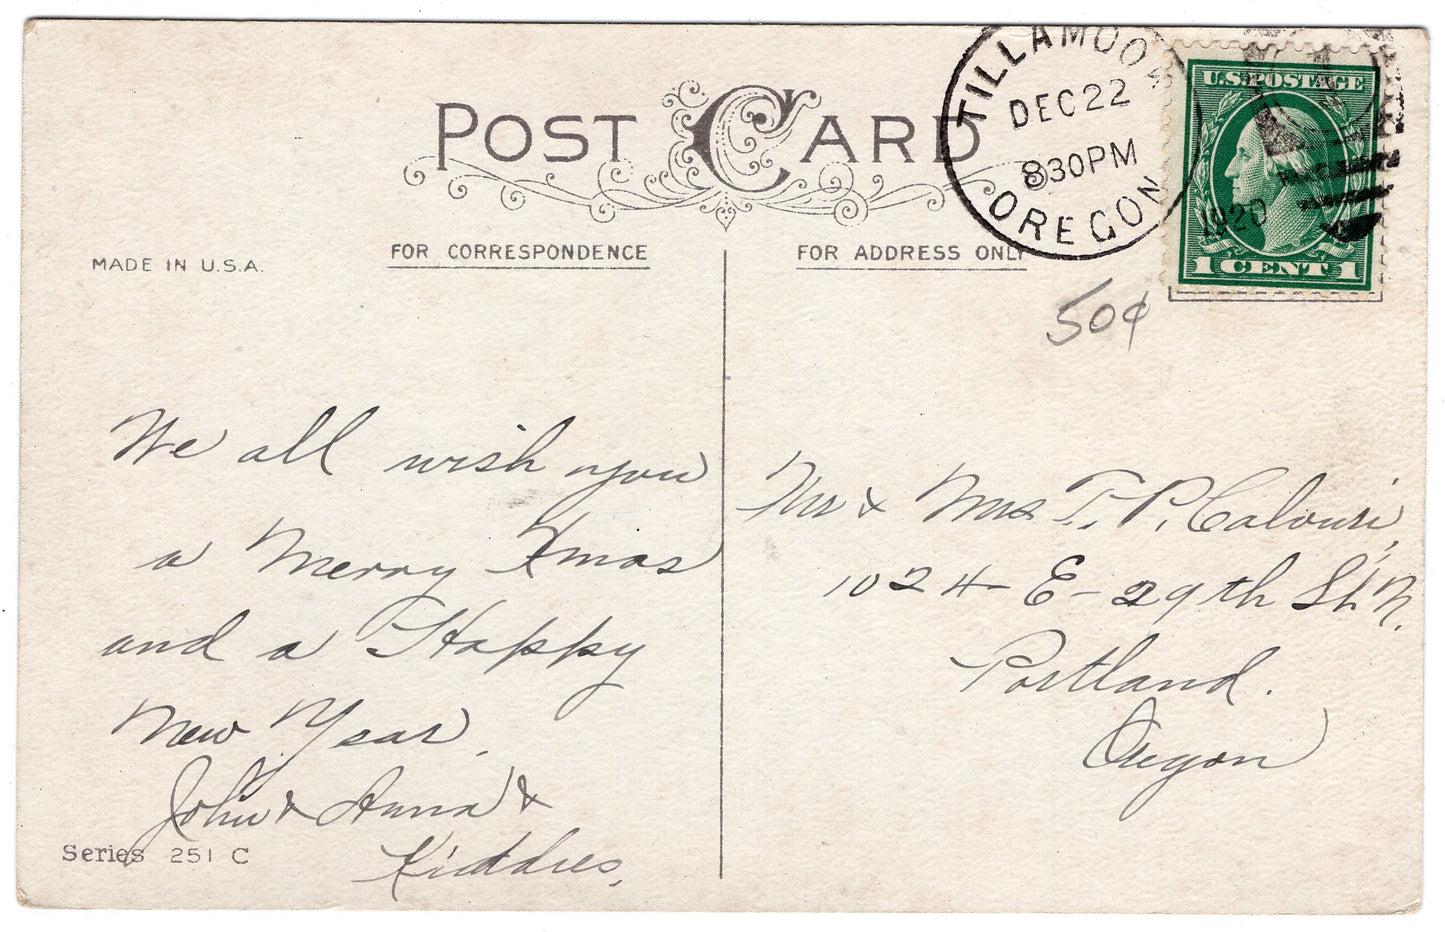 POST CARD
TILLAMOOK
DEC 22
830PM
1920
OREGON
U.S. POSTAGE
1 CENT 1
MADE IN U.S.A.
FOR CORRESPONDENCE
FOR ADDRESS ONLY
50¢
We all wish you
a Merry Xmas
and a Happy
New Year.
John & Anna &
Kiddies,
Series 251 C
Mr & Mrs T. P.
1024 E-29th St N.
Portland.
Oregon